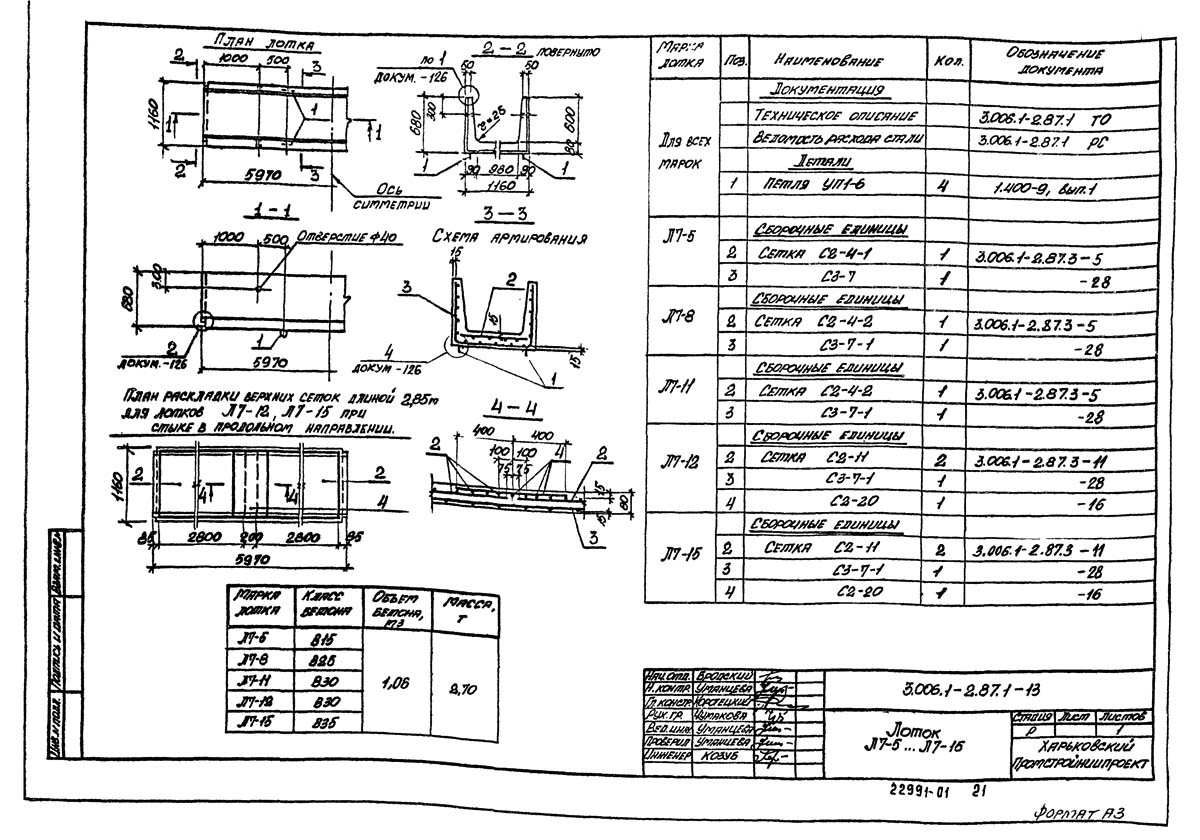 План лотка
2
1000
500
3
1160
1
1
1
2
3
5970
Ось
симметрии
2-2 повернуто
по 1
докум. -126
50
50
680
300
r=25
600
80
1
90
980
90
1
1160
1-1
1000
500
Отверстие ф40
300
680
2
докум. -126
1
5970
3-3
Схема армирования
15
3
2
15
4
докум -126
15
1
План раскладки верхних сеток длиной 2,85м
для лотков Л7-12, Л7-15 при
стыке в продольном направлении.
1160
2
4
4
2
4
85
2800
200
2800
85
5970
4-4
2
400
400
4
100
100
75
75
2
15
80
15
3
Марка лотка
Класс бетона
Объем бетона, м3
Масса, т
Л7-5 В15
Л7-8 В25
Л7-11 В30 1,06 2,70
Л7-12 В30
Л7-15 В35
Марка лотка
Поз.
Наименование
Кол.
Обозначение документа
Документация
Техническое описание 3.006.1-2.87.1 ТО
Для всех марок
Ведомость расхода стали 3.006.1-2.87.1 РС
Детали
1 Петля УП1-6 4 1.400-9, вып.1
Л7-5 Сборочные единицы
2 Сетка С2-4-1 1 3.006.1-2.87.3-5
3 С3-7 1 -28
Л7-8 Сборочные единицы
2 Сетка С2-4-2 1 3.006.1-2.87.3-5
3 С3-7-1 1 -28
Л7-11 Сборочные единицы
2 Сетка С2-4-2 1 3.006.1-2.87.3-5
3 С3-7-1 1 -28
Л7-12 Сборочные единицы
2 Сетка С2-11 2 3.006.1-2.87.3-11
3 С3-7-1 1 -28
4 С2-20 1 -16
Л7-15 Сборочные единицы
2 Сетка С2-11 2 3.006.1-2.87.3-11
3 С3-7-1 1 -28
4 С2-20 1 -16
Нач.отд. Бродский
Н.контр. Уманцева
Гл.констр. Коротецкий
Рук.гр. Чумакова
Вед.инж Уманцева
Проверил Уманцева
Инженер Козуб
3.006.1-2.87.1-13
Лоток
Л7-5...Л7-15
Стадия Лист Листов
Р 1
Харьковский
Промстройниипроект
Инв.№ подл. Подпись и дата Взам.инв.№
22991-01 21
Формат А3